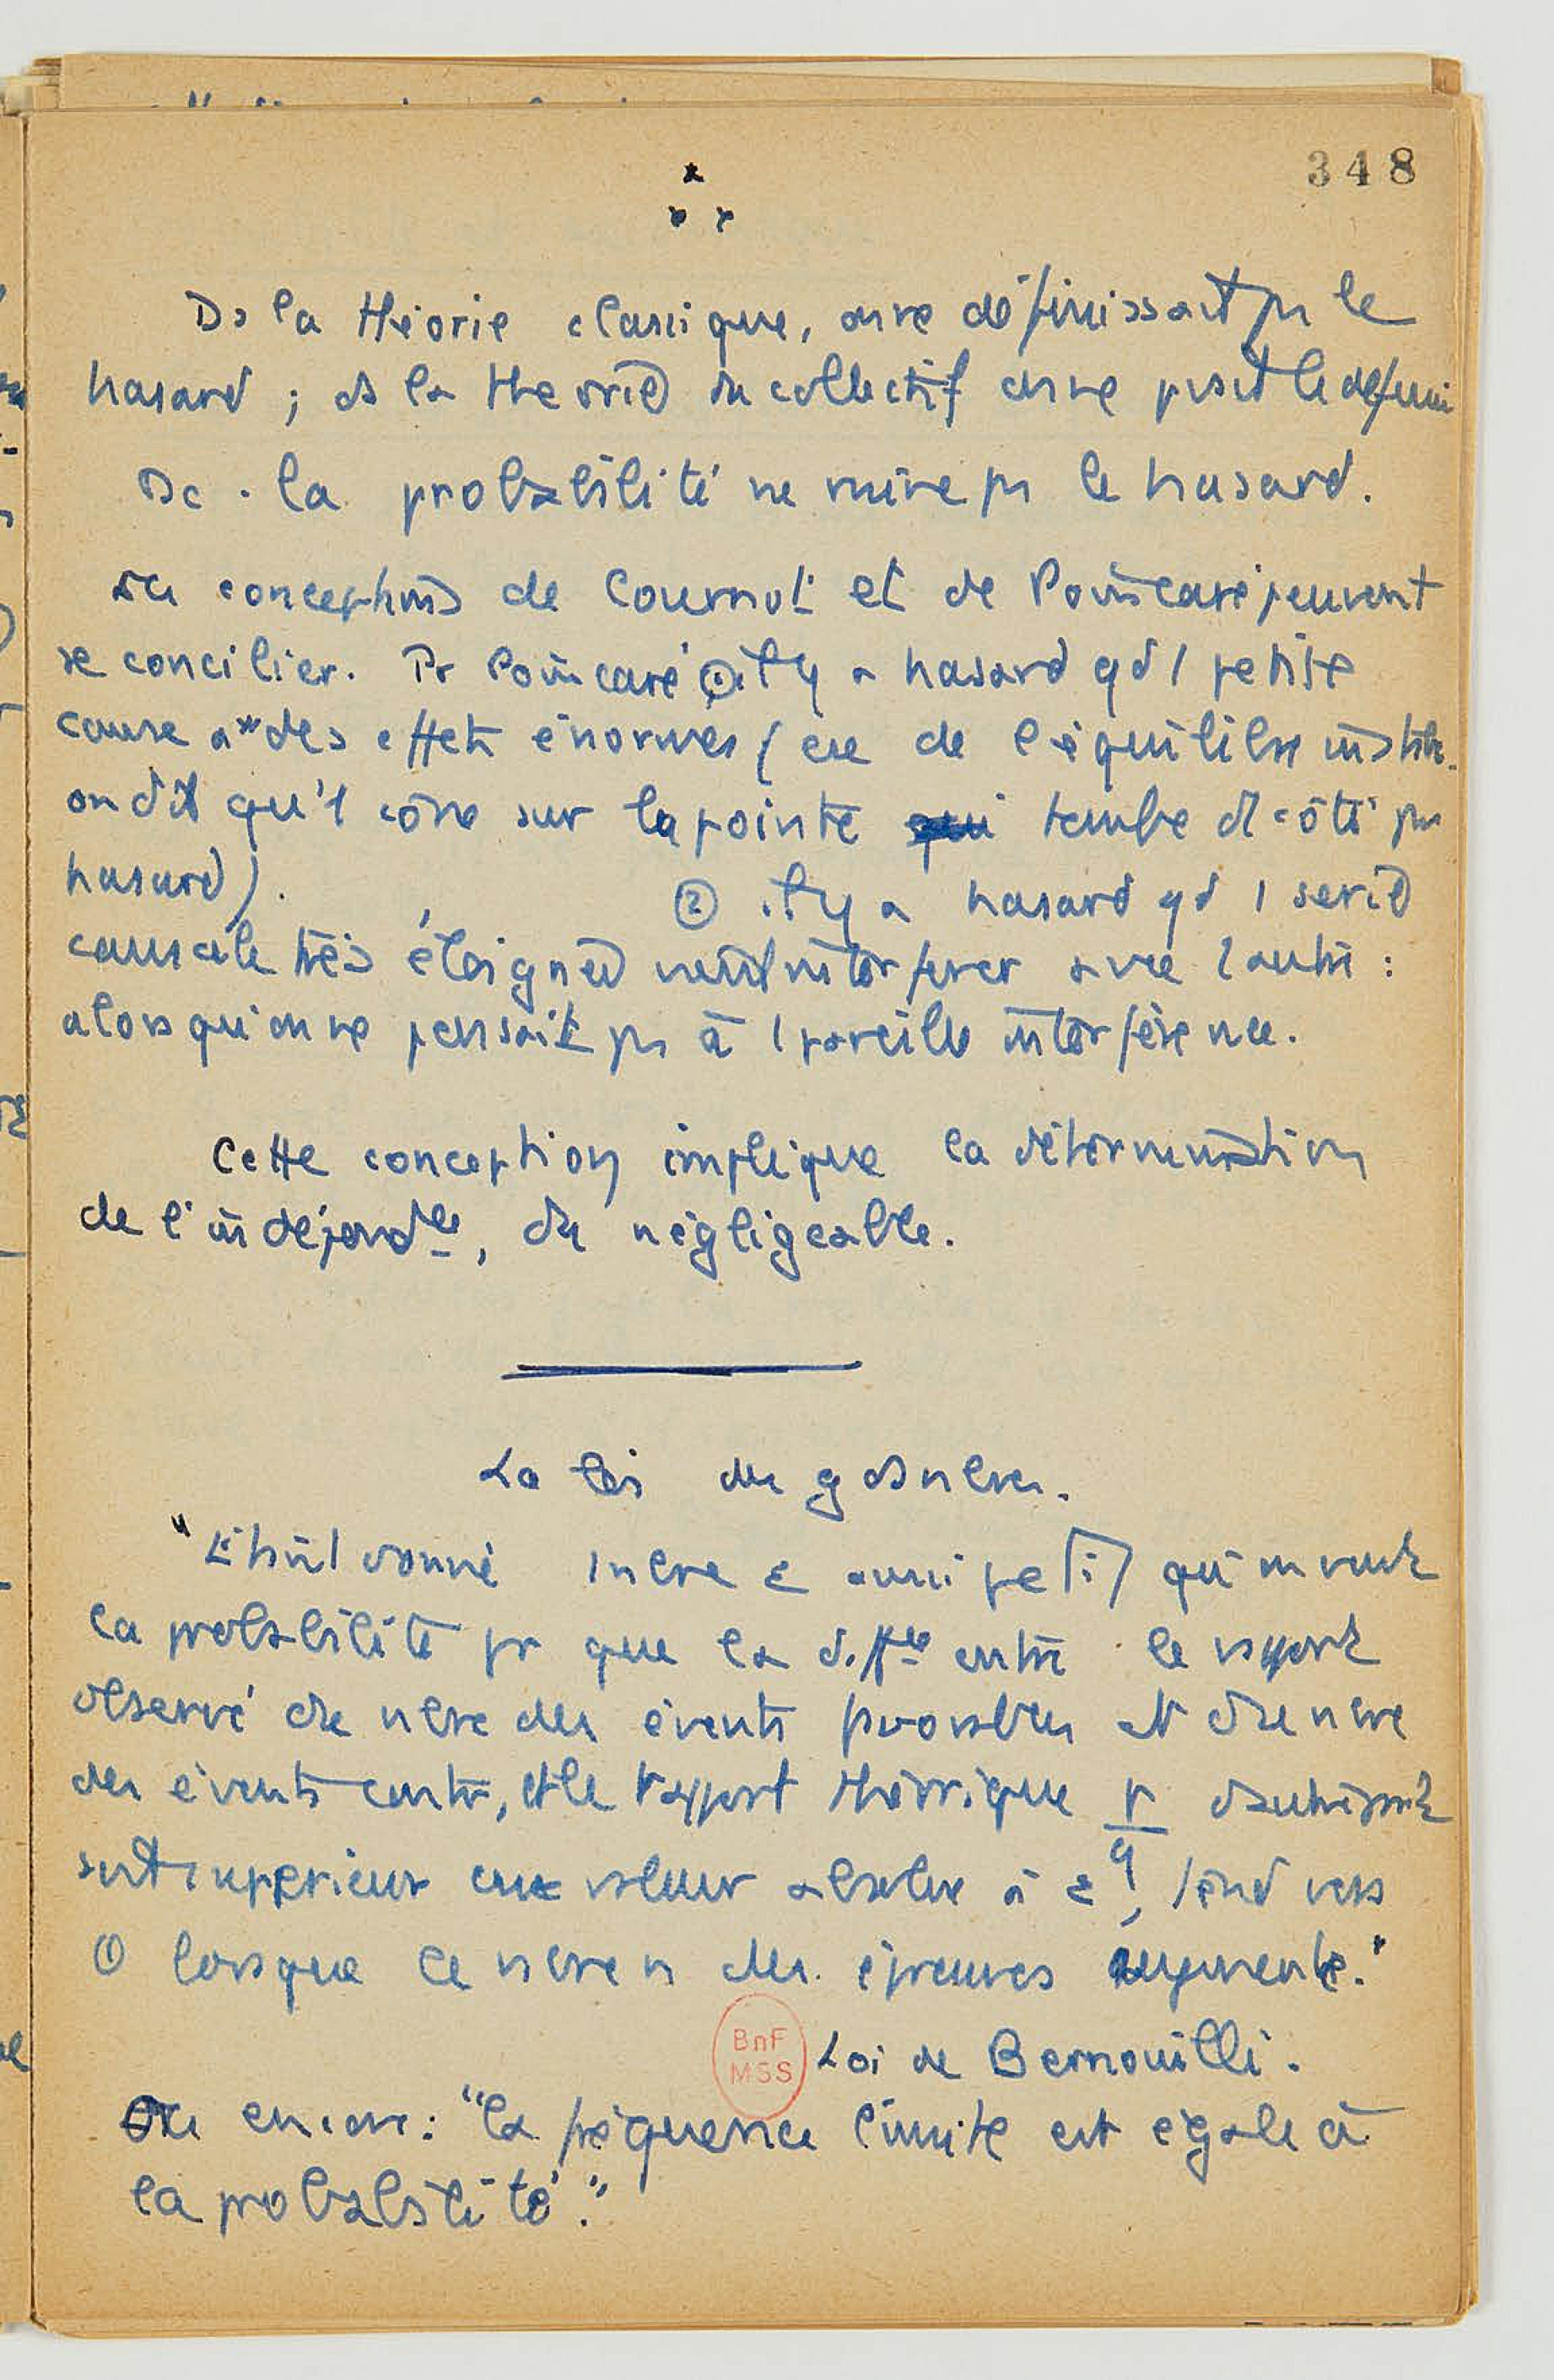 348
Ds la théorie classique, on ne définissait pas le
hasard ; ds la théorie du collectif on ne peut le définir
Dc . la probabilité ne mène pas le hasard.
Les conceptions de Cournot et de Poincaré peuvent
se concilier. Pr Poincaré ① il y a hasard qd 1 petite
cause a des effets énormes (cse de l'équilibre instable.
on dit qu'1 cône sur la pointe tombe d1 côté par
hasard).
② il y a hasard qd 1 série
causale très éloignée vient interférer avec l'autre :
alors qu'on ne pensait pas à 1 pareille interférence.
Cette conception implique la détermination
de l'indépendce, du négligeable.
La loi des gds nbres.
"Etant donné 1 nbre ε aussi petit qu'on veut
la probabilité pr que la diffce entre le rapport
observé du nbre des évents favorables et du nbre
des évents contr, et le rapport théorique p/q
soit supérieur en valeur absolue à ε, tend vers
0 lorsque le nbre n des épreuves augmente."
BnF
MSS
Loi de Bernouilli.
Ou encore : "la fréquence limite est égale à
la probabilité."